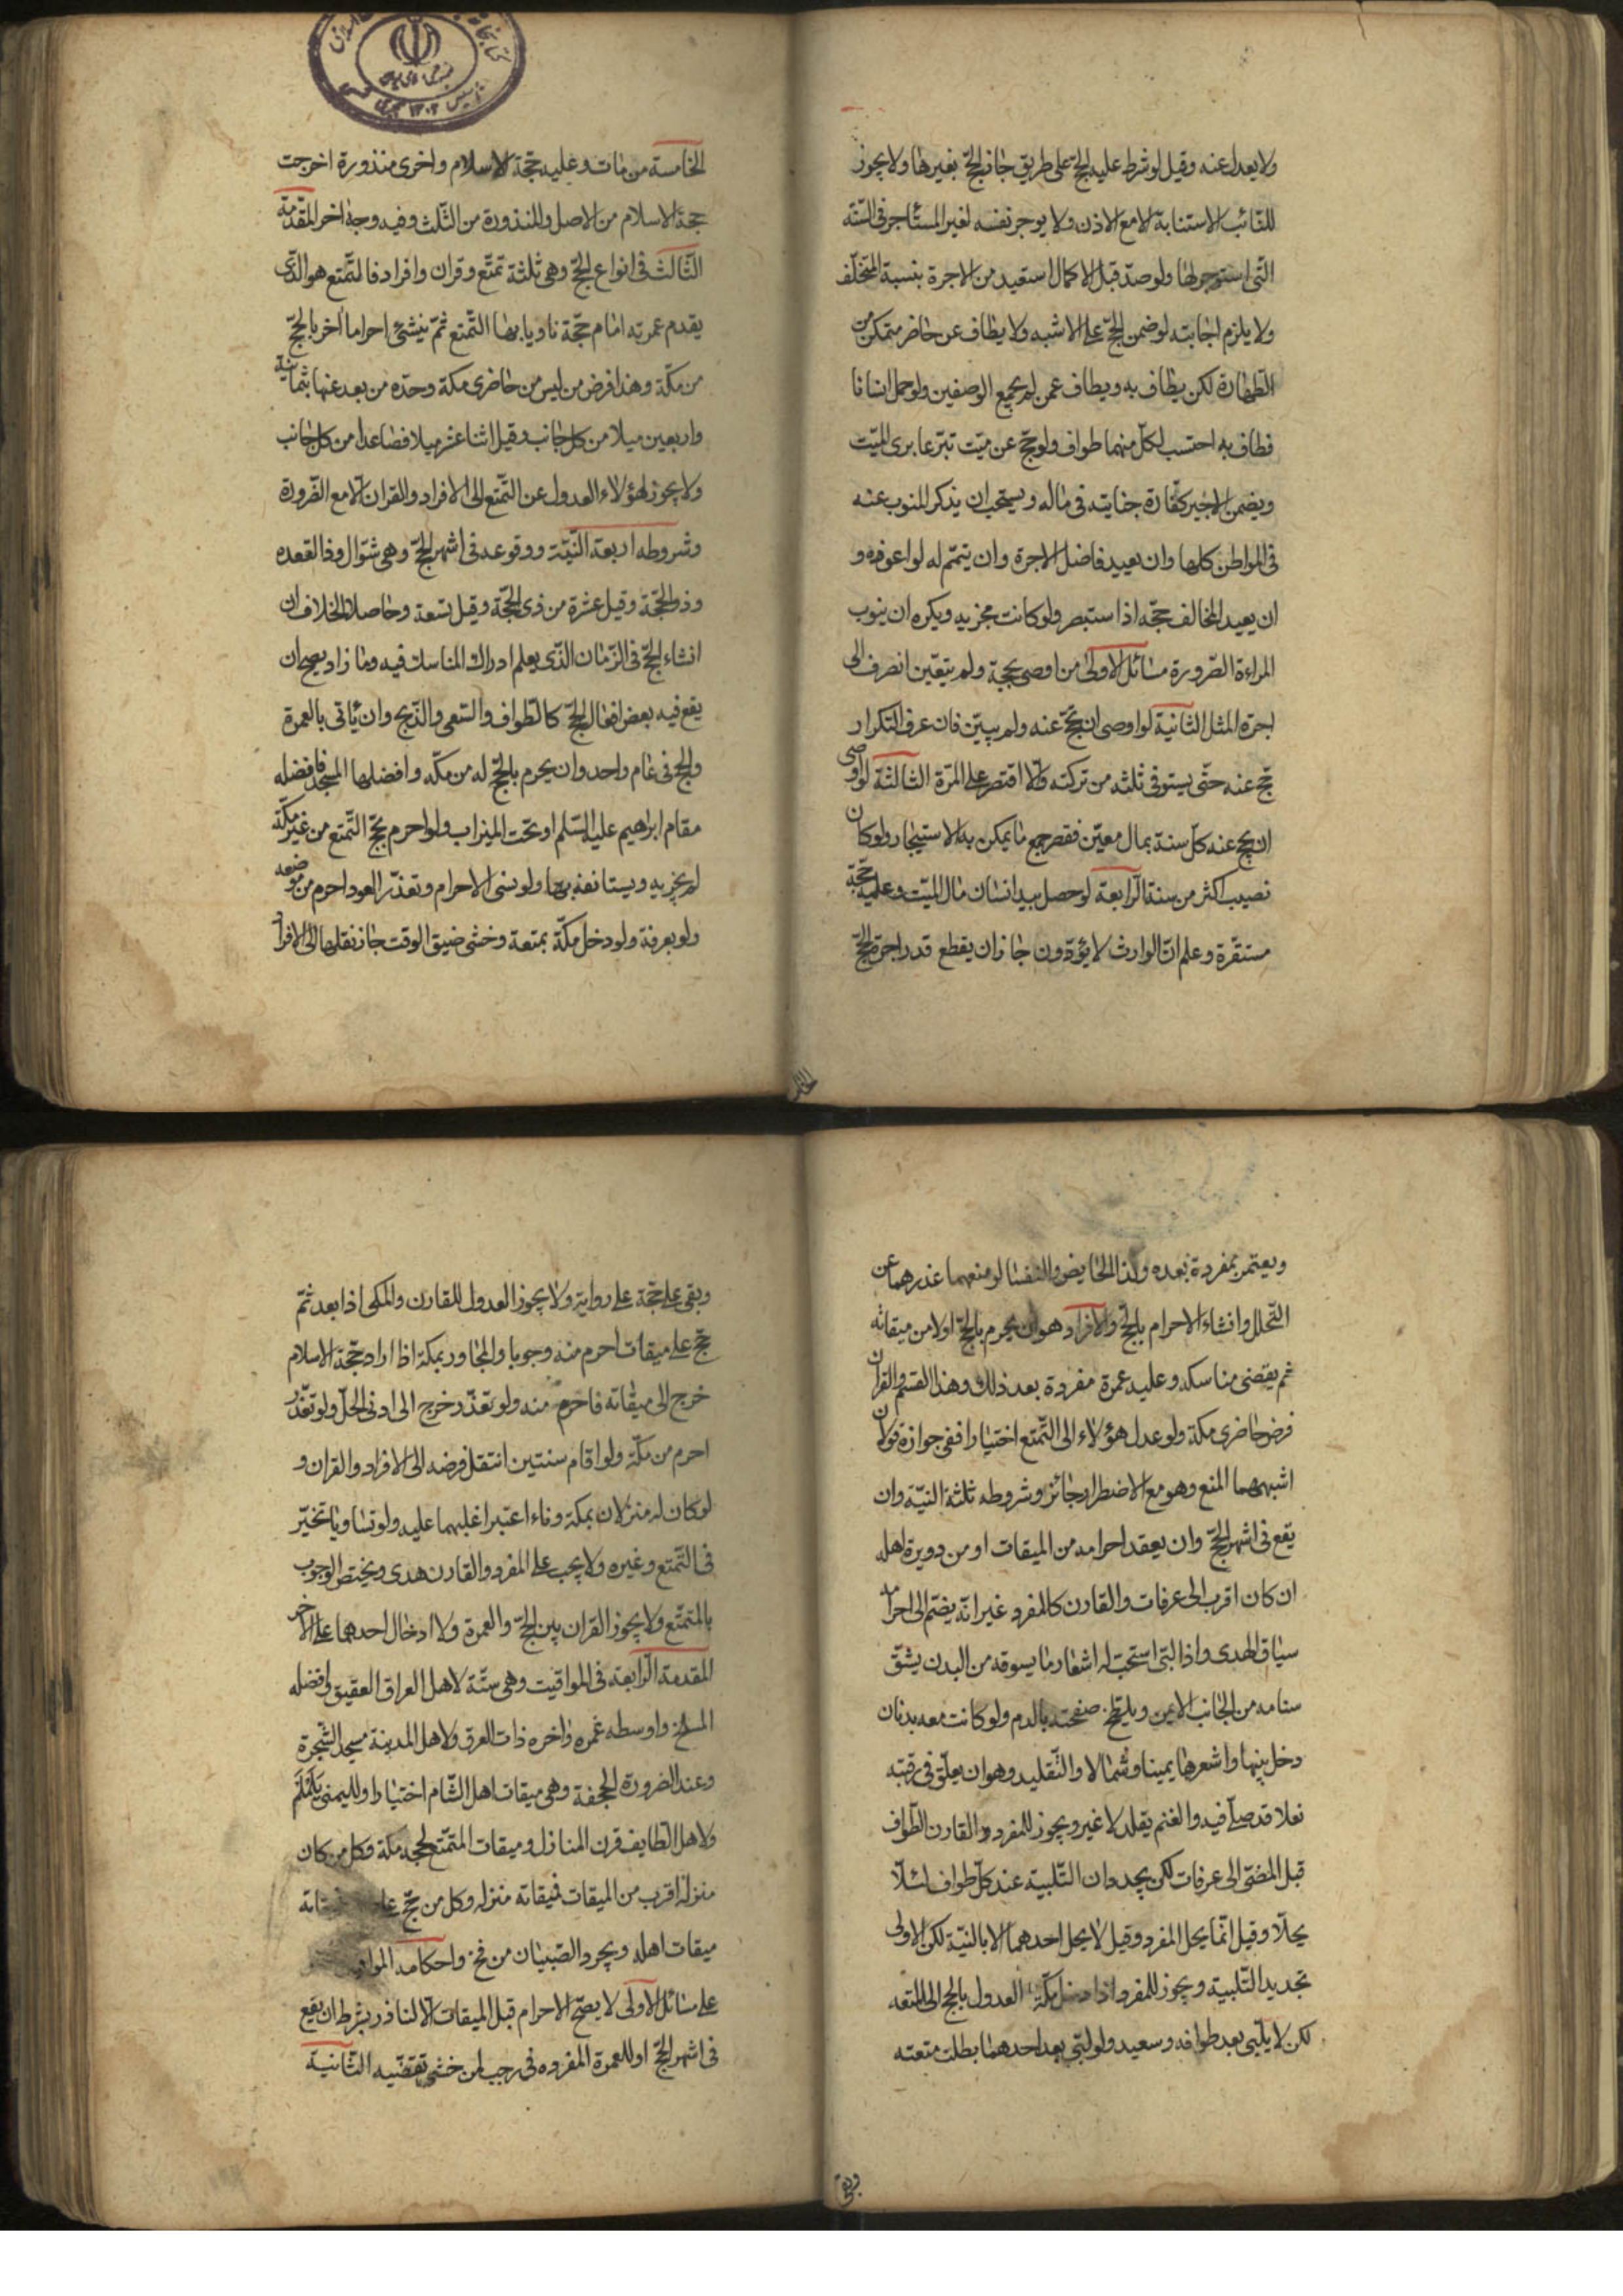 ولا يعدل عنه وقيل لو شرط عليه الحجّ على طريق جاز الحجّ بغيرها ولا يجوز
للنائب الاستنابة الا مع الاذن ولا يوجر نفسه لغير المستأجر فى السّنه
التّى استوجر لها ولو صدّ قبل الاكمال استعيد من الاجرة بنسبة المتخلّف
ولا يلزم اجابته لو ضمن الحجّ على الاشبه ولا يطاف عن حاضر متمكن من
الطّهارة لكن يطاف به ويطاف عمن لم يجمع الوصفين ولو حمل انسانا
فطاف به احتسب لكلّ منهما طواف ولو حجّ عن ميّت تبرّعا برى الميّت
ويضمن الاجير كفّارة جنايته فى ماله ويستحب ان يذكر المنوب عنه
فى المواطن كلها وان يعيد فاضل الاجرة وان يتمّم له لو اعوزه و
ان يعيد المخالف حجّه اذا استبصر ولو كانت مجزيه ويكره ان ينوب
المراءة الصّرورة مسائل الاولى من اوصى بحجّة ولم يتعّين انصرف الى
اجرة المثل الثانية لو اوصى ان يحّج عنه ولم يبيّن فان عرف التكرار
حّج عنه حتّى يستوفى ثلثه من تركته والّا اقتصر على المرّة الثالثة لو اوصى
ان يحج عنه كلّ سنة بمال معيّن فقصر جمع ما يمكن به الاستيجار ولو كان
نصيب اكثر من سنة الرّابعة لو حصل بيد انسان مال الميّت وعليه حجّة
مستقرّة وعلم انّ الوارث لا يؤدّون جاز ان يقطع قدر اجرة الحجّ
الخامسة من مات وعليه حجّة الاسلام واخرى منذورة اخرجت
حجة الاسلام من الاصل والمنذورة من الثلث وفيه وجه اخر المقّدمة
الثّالث فى انواع الحجّ وهى ثلثة تمتّع وقران وافراد فالتمّتع هو الذّى
يقدم عمرته امام حجّة ناويا بها التّمتع ثمّ ينشئ احراما اخر بالحجّ
من مكّة وهذا فرض من ليس من حاضرى مكة وحدّه من بعد عنها بثمانية
واربعين ميلا من كل جانب وقيل اثنا عشر ميلا فصاعدا من كل جانب
ولا يجوز لهؤلاء العدول عن التّمتع الى الافراد والقران الّا مع الضّرورة
وشروطه اربعة النّيّة ووقوعه فى اشهر الحجّ وهى شوّال وذا القعده
وذو الحجّة وقيل عشرة من ذى الحجّة وقيل تسعة وحاصل الخلاف ان
انشاء الحجّ فى الزّمان الذّى يعلم ادراك المناسك فيه وما زاد يصح ان
يقع فيه بعض افعال الحجّ كالطّواف والسّعى والذّبح وان يأتى بالعمرة
والحج فى عام واحد وان يحرم بالحجّ له من مكّه وافضلها المسجد فافضله
مقام ابراهيم عليه السّلم او تحت الميزاب ولو احرم بحجّ التّمتع من غير مكّة
لم يجزيه ويستانفه بها ولو نسى الاحرام وتعذّر العود احرم من موضعه
ولو بعرفة ولو دخل مكّة بمتعة وخشى ضيق الوقت جاز نقلها الى الافراد
ويعتمر بمفردة بعده وكذا الحايض والنفسا لو منعهما عذرهما عن
التّحلل وانشاء الاحرام بالحجّ والافراد هو ان يحرم بالحجّ اولا من ميقاته
ثم يقضى مناسكه وعليه عمرة مفردة بعد ذلك وهذا القسم والقران
فرض حاضرى مكة ولو عدل هؤلاء الى التّمتع اختيارا ففى جوازه قولان
اشبههما المنع وهو مع الاضطرار جائز وشروطه ثلثة النيّة وان
يقع فى اشهر الحجّ وان يعقد احرامه من الميقات او من دويرة اهله
ان كان اقرب الى عرفات والقارن كالمفرد غير انّه يضمّ الى احرامه
سياق الهدى واذا لبّى استحبّ له اشعار ما يسوقه من البدن يشقّ
سنامه من الجانب الايمن ويلطخ صفحته بالدم ولو كانت معه بدنان
دخل بينها واشعرها يمينا وشمالا والتّقليد وهو ان يعلّق فى رقبته
نعلا قد صلّى فيه والغنم يقلد لا غير ويجوز للمفرد والقارن الطّواف
قبل المضّى الى عرفات لكن يجددان التلّبية عند كلّ طواف لئلّا
يحلّا وقيل انّما يحل المفرد وقيل لا يحل احدهما الا بالنيّة لكن الاولى
تجديد التلّبية ويجوز للمفرد اذا دخل مكّة العدول بالحج الى المتعه
لكن لا يلّبى بعد طوافه وسعيه ولو لبّى بعد احدهما بطلت متعته
وبقى على حجّة على رواية ولا يجوز العدول للقارن والمكى اذا بعد ثمّ
حّج على ميقات احرم منه وجوبا والمجاور بمكة اذا اراد حجّة الاسلام
خرج الى ميقاته فاحرم منه ولو تعذّر خرج الى ادنى الحلّ ولو تعذّر
احرم من مكّة ولو اقام سنتين انتقل فرضه الى الافراد والقران و
لو كان له منزلان بمكة وناء اعتبر اغلبهما عليه ولو تساويا تخيّر
فى التّمتع وغيره ولا يجب على المفرد والقارن هدى ويختص الوجوب
بالمتمتّع ولا يجوز القران بين الحجّ والعمرة ولا ادخال احدهما على الاخر
المقدمة الرّابعة فى المواقيت وهى ستّة لاهل العراق العقيق وافضله
المسلخ واوسطه غمره واخره ذات العرق ولاهل المدينة مسجد الشّجرة
وعند الضرورة الجحفة وهى ميقات اهل الشّام اختيارا ولليمنى يَلَمْلَم
ولاهل الطايف قرن المنازل وميقات المتمّتع لحجه مكة وكل من كان
منزله اقرب من الميقات فميقاته منزله وكل من حجّ على
ميقات اهله ويجرد الصّبيان من فخ واحكام
على مسائل الاولى لا يصحّ الاحرام قبل الميقات الّا لناذر بشرط ان يقع
فى اشهر الحجّ او للعمرة المفرده فى رجب لمن خشى تقضّيه الثّانية